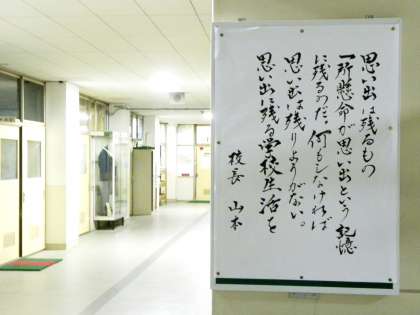 思い出は残るもの
一所懸命が思い出という記憶
に残るのだ。何もしなければ
思い出は残りようがない。
思い出に残る学校生活を
校長 山本